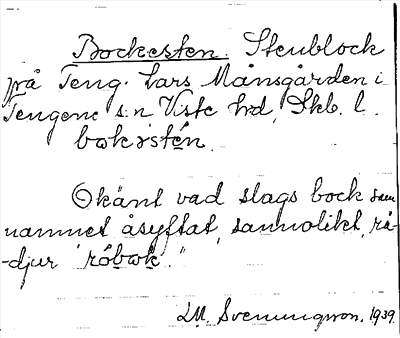 Bockesten. Stenblock
på Teng. Lars Månsgården i
Tengene s:n, Viste hd, Skb. l.
bok​əstén.
Okänt vad slags bock som
namnet åsyftat, sannolikt, rå-
-djur "råbok."
L.M. Svenungsson. 1939.